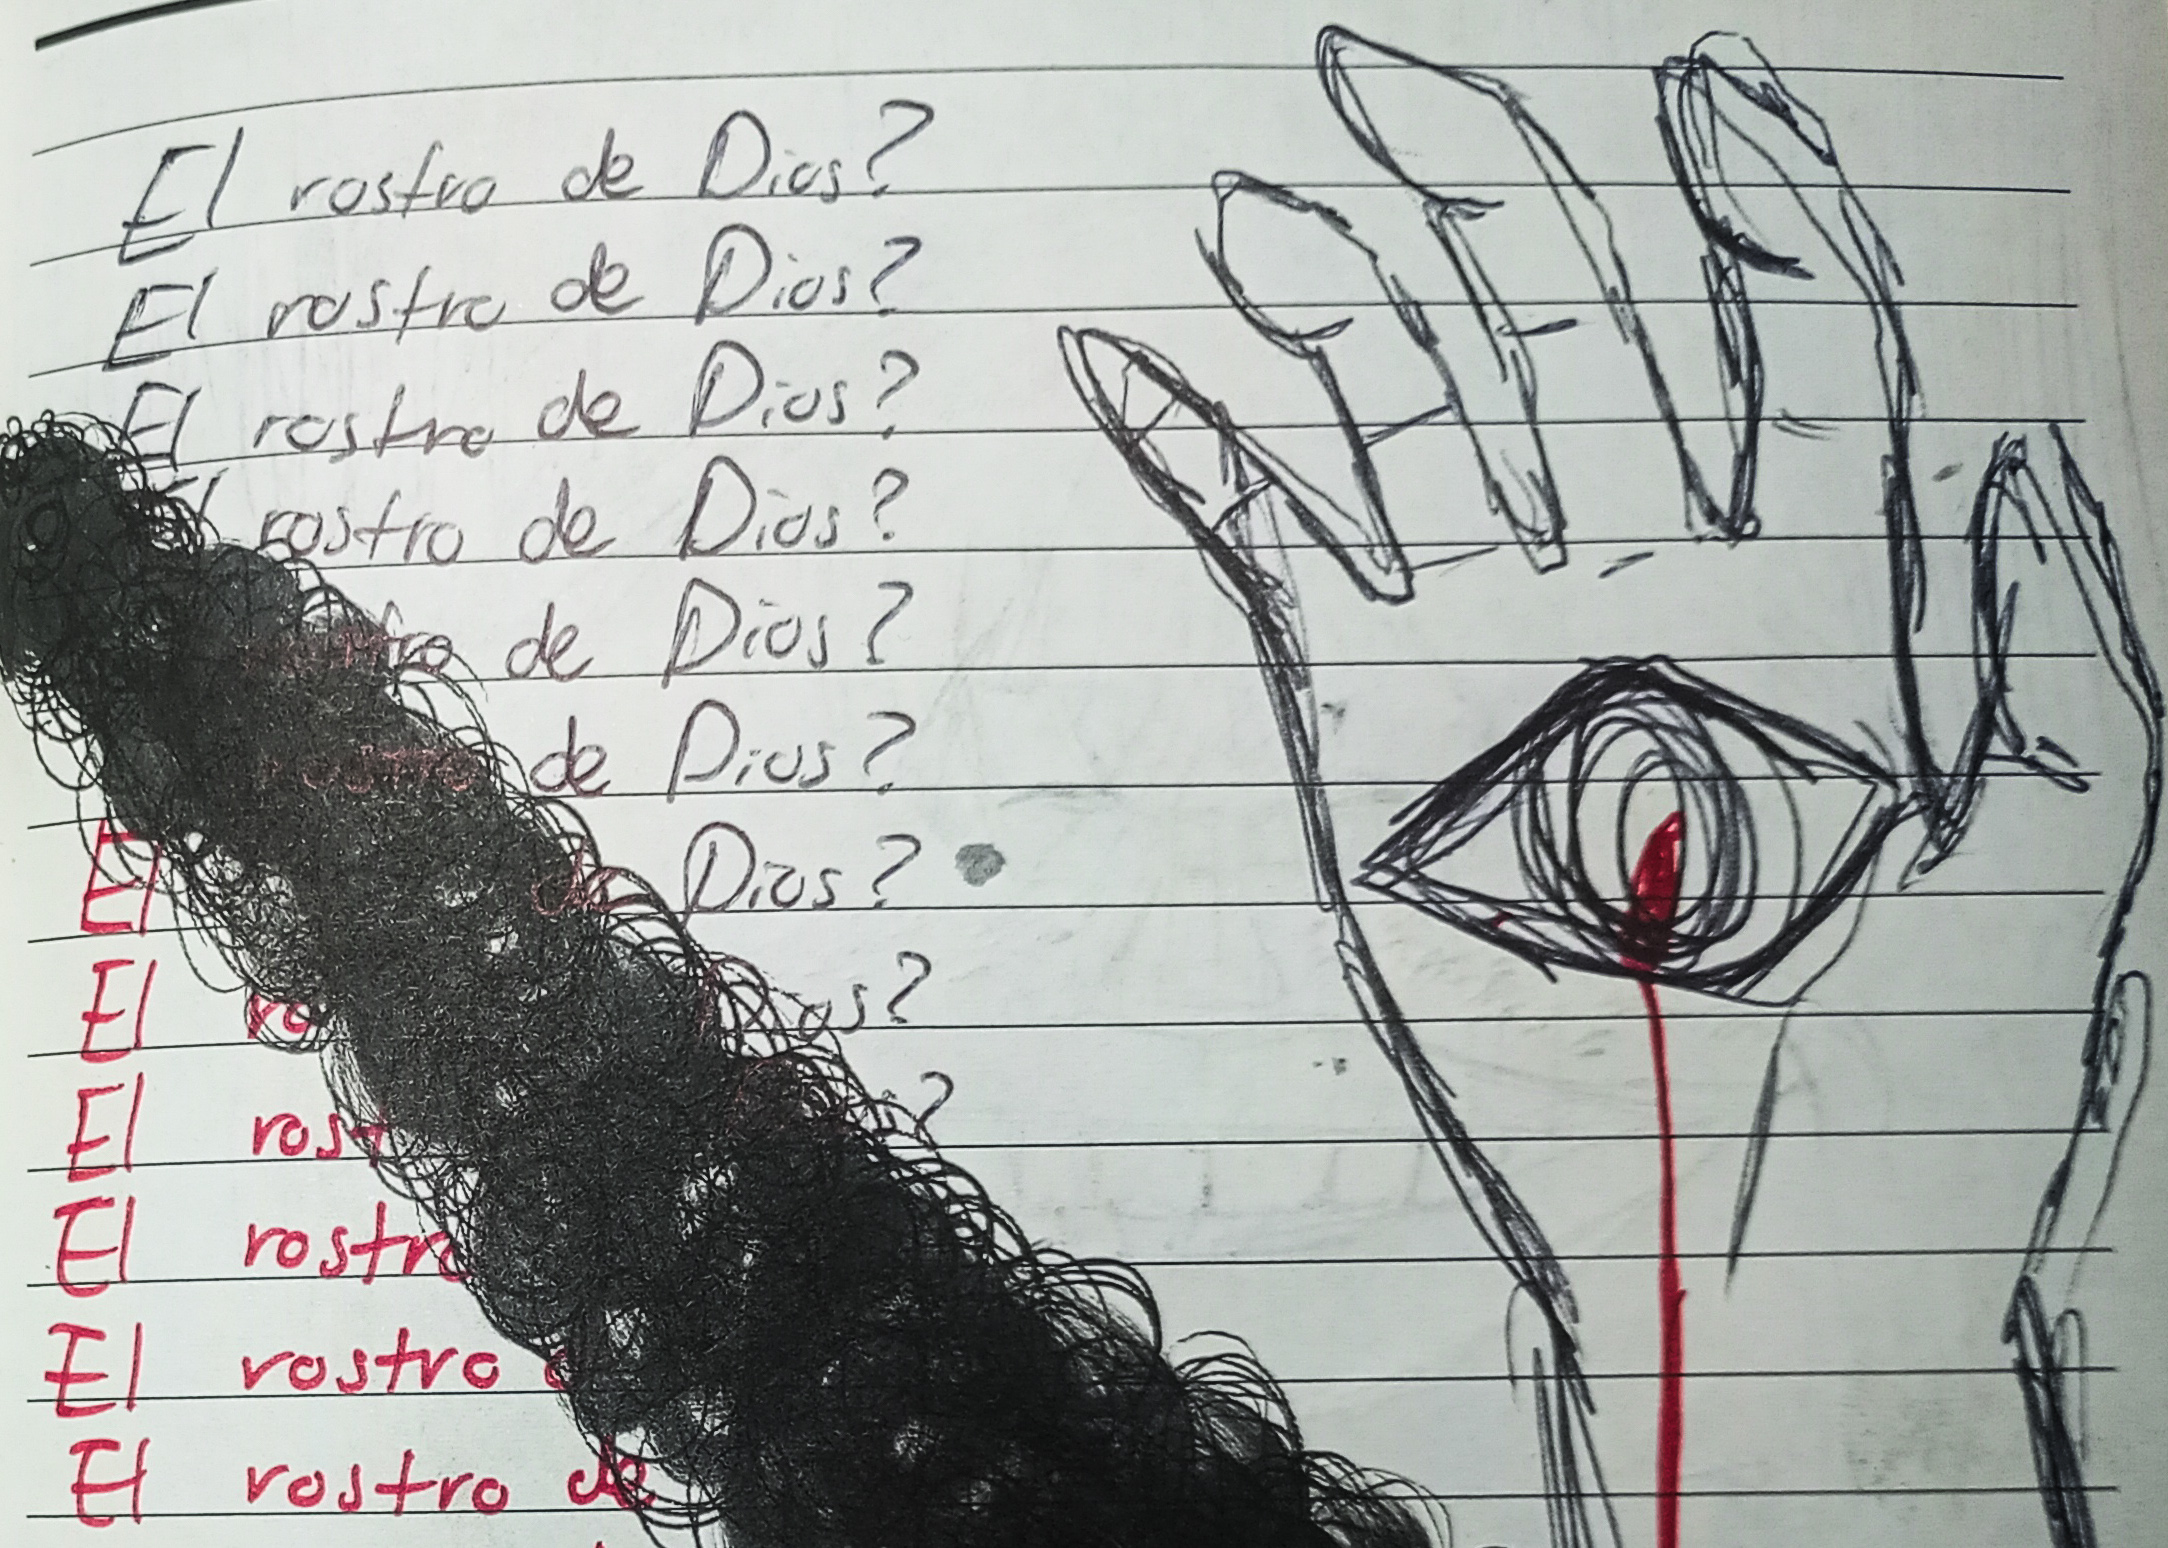 El rostro de Dios?
El rostro de Dios?
El rostro de Dios?
El rostro de Dios?
rostro de Dios?
rostro de Dios?
El de Dios?
El
El
El rostro
El rostro
El rostro de